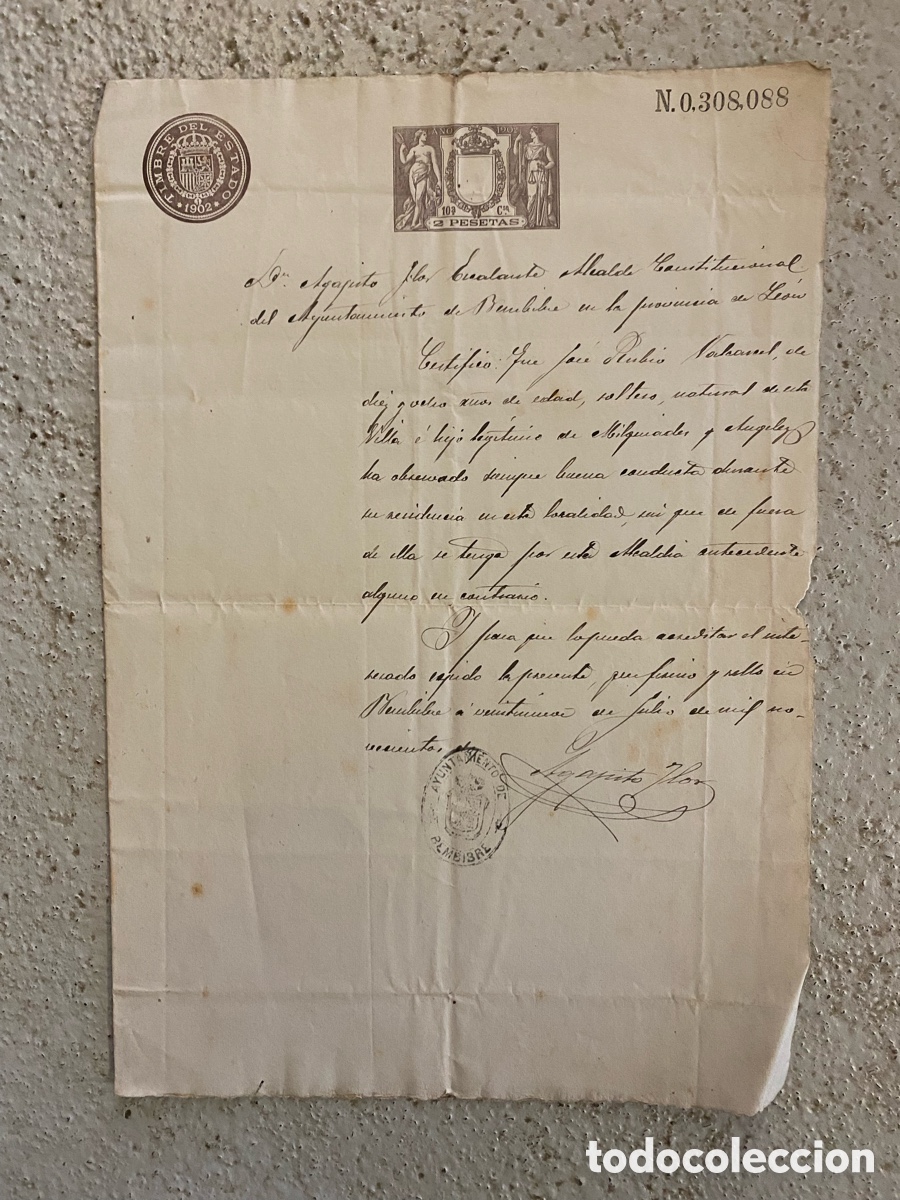 N.0,308,088
TIMBRE DEL ESTADO
1902
AÑO 1902
10ª Cla
2 PESETAS
Dn. Agapito Flor Escalante Alcalde Constitucional
del Ayuntamiento de Bembibre en la provincia de León
Certifico: Que José Rubio Valcarcel, de
diez y ocho años de edad, soltero, natural de esta
Villa é hijo legítimo de Milquiades y Angelez
ha observado siempre buena conducta durante
su residencia en esta localidad, sin que de fuera
de ella se tenga por esta Alcaldia antecedente
alguno en contrario.
Y para que lo pueda acreditar el inte-
resado expido la presente que firmo y sello en
Bembibre á veintinueve de Julio de mil no-
vecientos dos
Agapito Flor
AYUNTAMIENTO DE
BEMBIBRE
todocoleccion